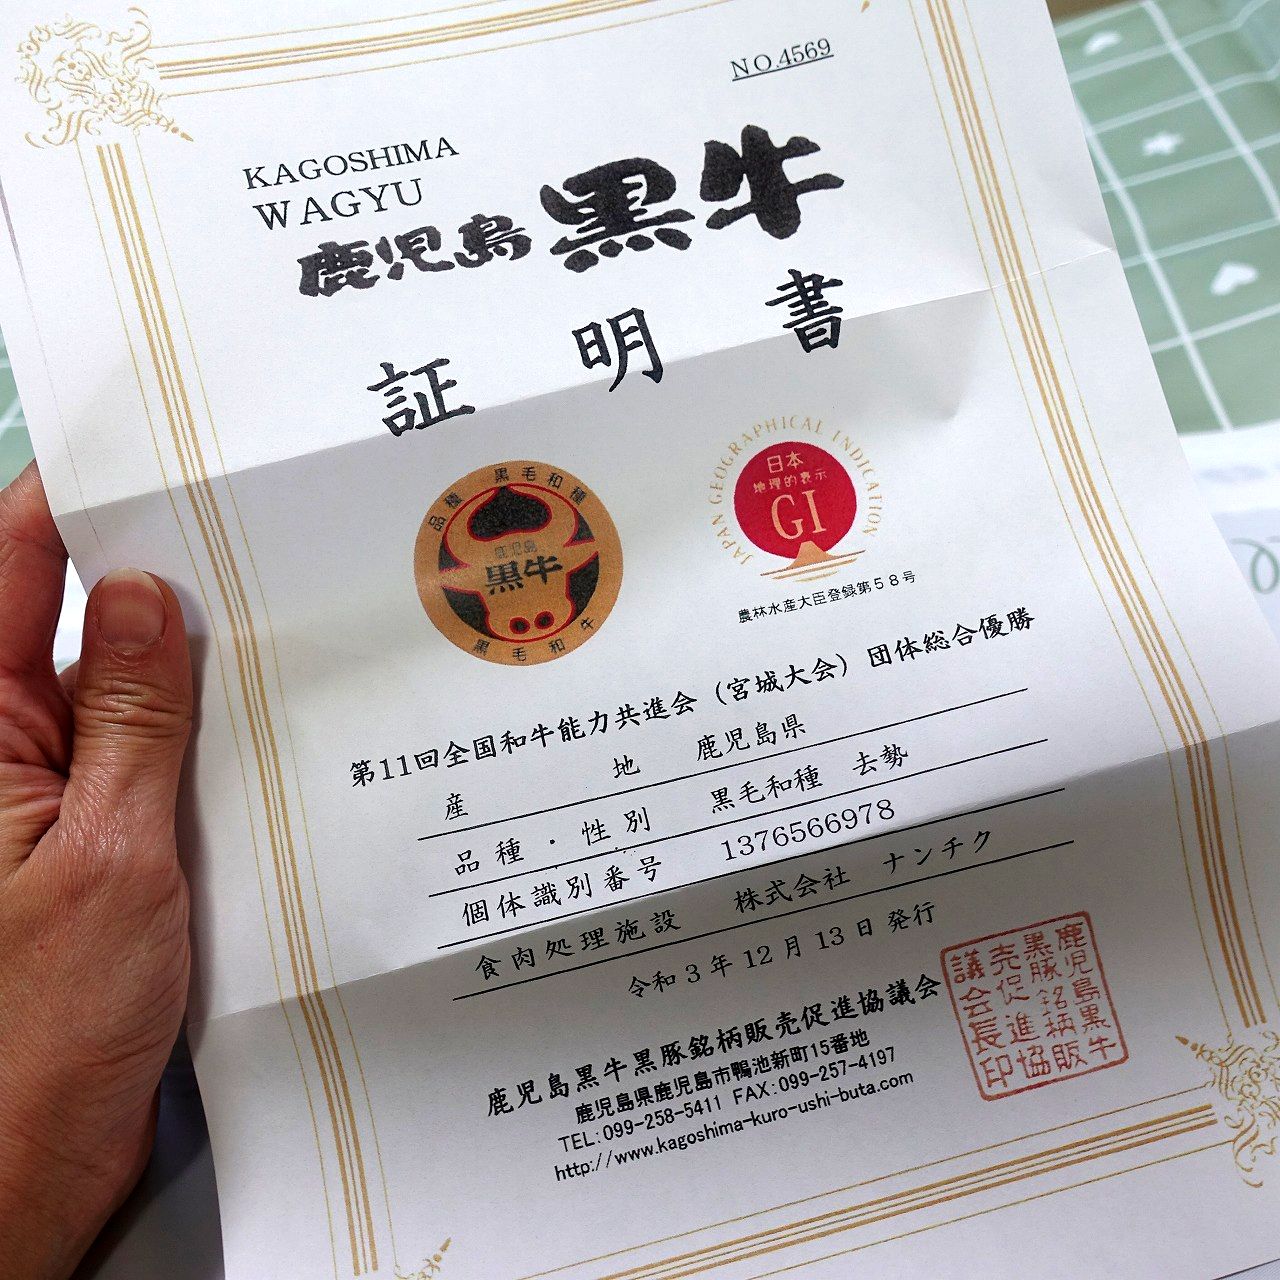 NO.4569
KAGOSHIMA
WAGYU
鹿児島黒牛
証明書
品種 黒毛和種
鹿児島
黒牛
黒毛和牛
JAPAN GEOGRAPHICAL INDICATION
日本
地理的表示
GI
農林水産大臣登録第58号
第11回全国和牛能力共進会(宮城大会)団体総合優勝
産地 鹿児島県
品種・性別 黒毛和種 去勢
個体識別番号 1376566978
食肉処理施設 株式会社 ナンチク
令和3年12月13日発行
鹿児島黒牛黒豚銘柄販売促進協議会
鹿児島県鹿児島市鴨池新町15番地
TEL:099-258-5411 FAX:099-257-4197
http://www.kagoshima-kuro-ushi-buta.com
鹿児島黒牛
黒豚銘柄販
売促進協
議会長印